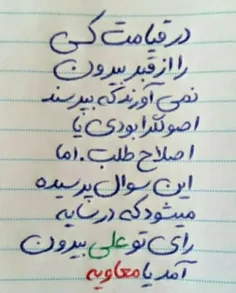 در قیامت کسی
را از قبر بیرون
نمی آورند که بپرسند
اصولگرا بودی یا
اصلاح طلب. اما
این سوال پرسیده
میشود که در سایه
رای تو علی بیرون
آمد یا معاویه